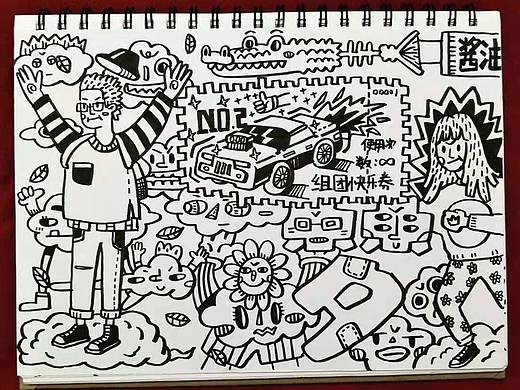 酱油
00001
NO.2
使用次
数:∞
组团快乐券